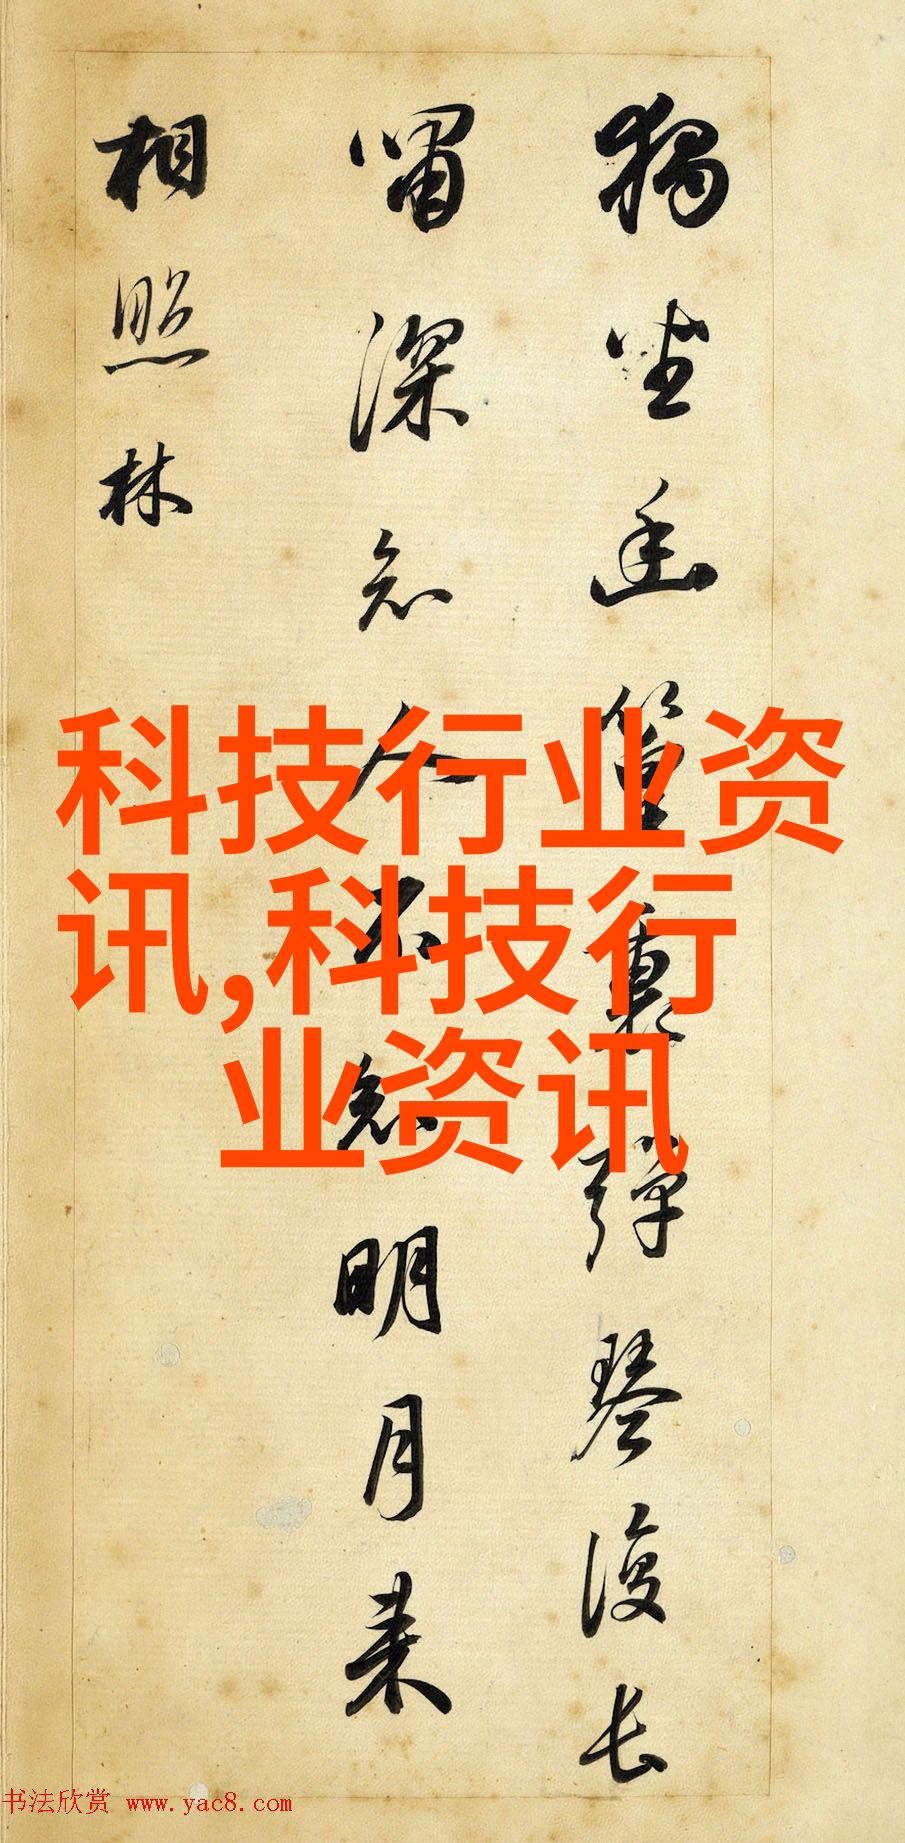 獨坐幽篁裏彈琴復長
嘯深知人不知明月来
相照林
科技行业资
讯,科技行
业资讯
书法欣赏 www.yac8.com